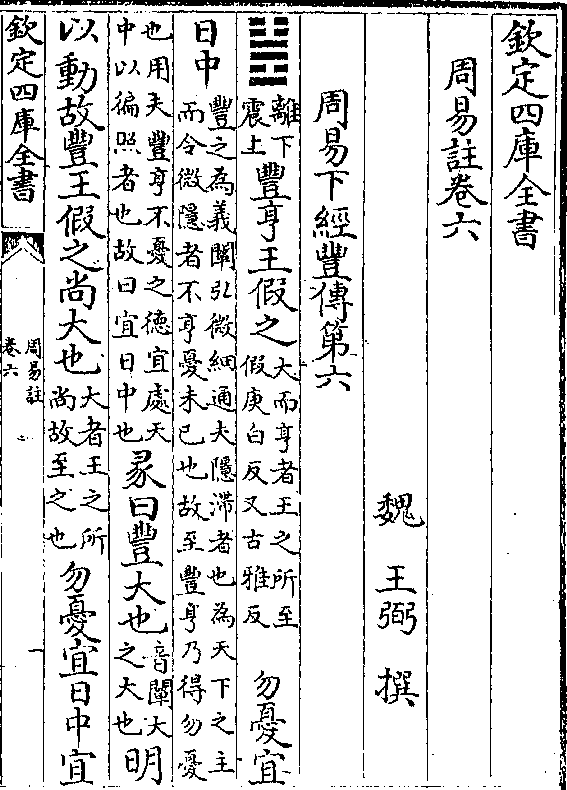 欽定四庫全書
周易註卷六
魏 王弼 撰
周易下經豐傳第六
䷶離下震上豐亨王假之大而亨者王之所至假庚白反又古雅反勿憂宜
日中豐之為義闡弘微細通夫隱滯者也為天下之主而令微隱者不亨憂未已也故至豐亨乃得勿憂
也用夫豐亨不憂之德宜處天中以徧照者也故曰宜日中也彖曰豐大也音闡大之大也明
以動故豐王假之尚大也大者王之所尚故至之也勿憂宜日中宜
欽定四庫全書
周易註
卷六
一